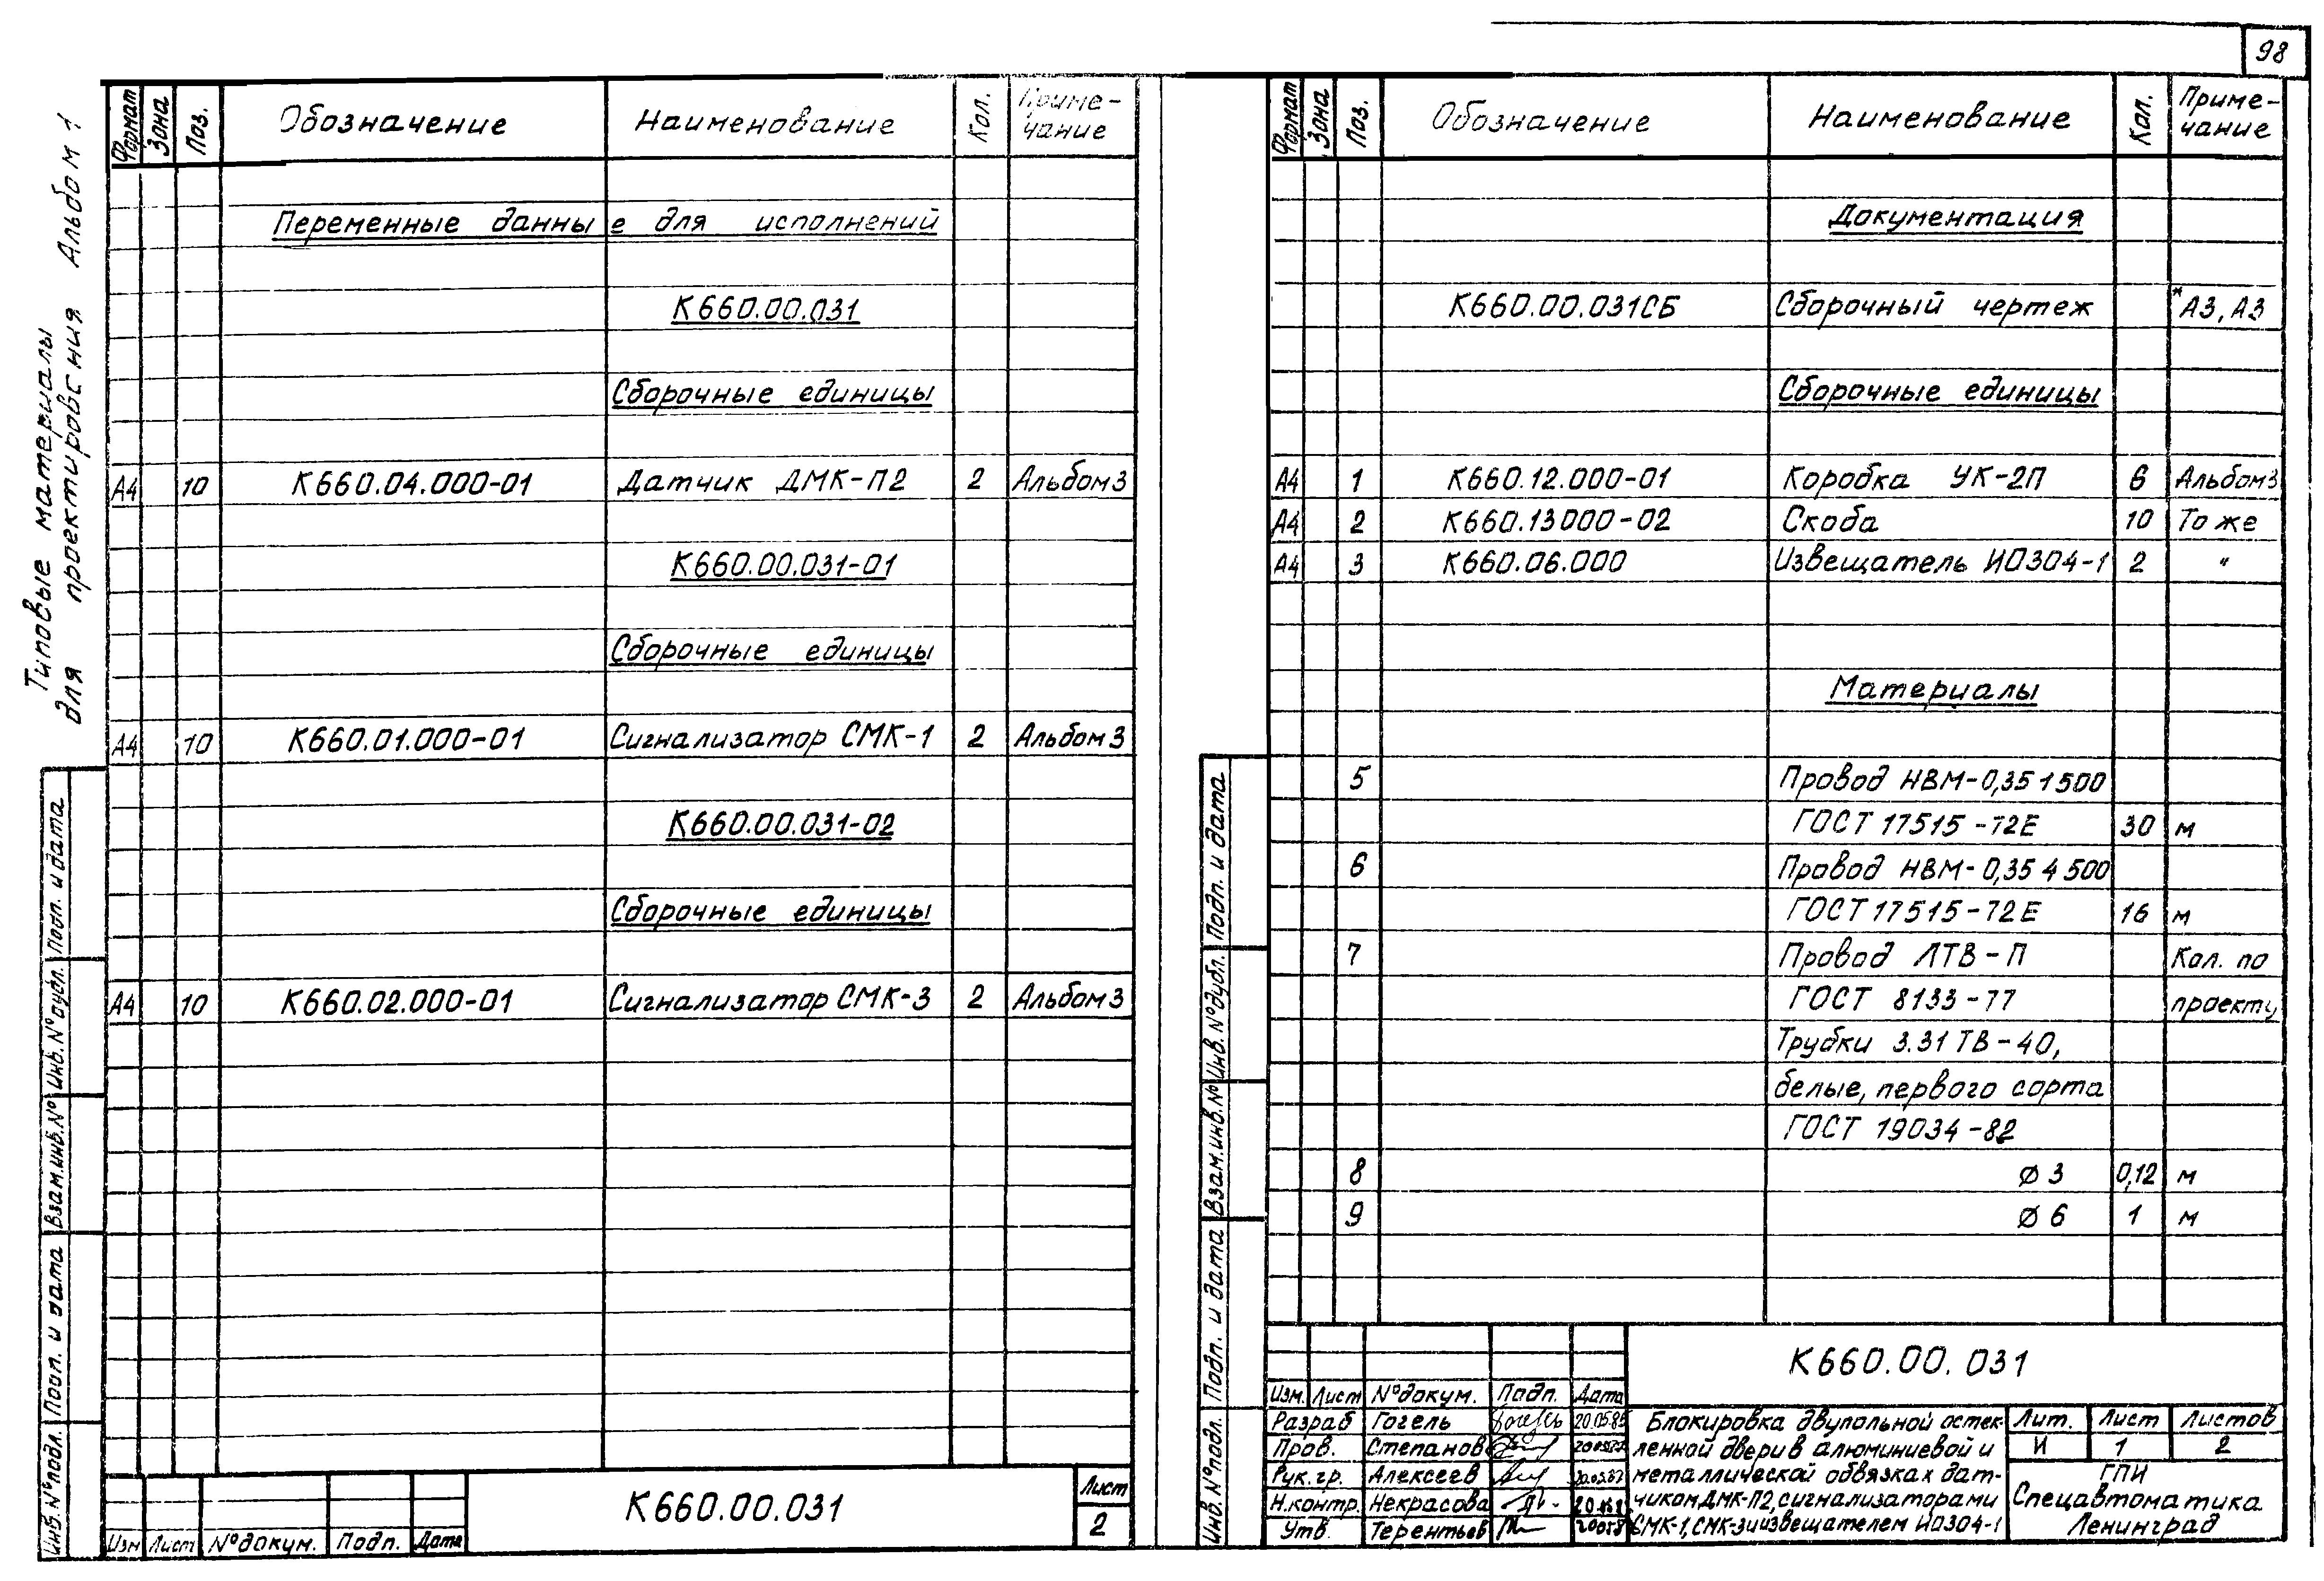 98
Типовые материалы
для проектирования Альбом 1
Формат Зона Поз. Обозначение Наименование Кол. Приме-
чание
Переменные данные для исполнений
К660.00.031
Сборочные единицы
А4 10 К660.04.000-01 Датчик ДМК-П2 2 Альбом3
К660.00.031-01
Сборочные единицы
А4 10 К660.01.000-01 Сигнализатор СМК-1 2 Альбом3
К660.00.031-02
Сборочные единицы
А4 10 К660.02.000-01 Сигнализатор СМК-3 2 Альбом3
Инв.N°подл. Подп. и дата Взам.инв.N° Инв.N°дубл. Подп. и дата
К660.00.031
Лист
2
Изм Лист N°докум. Подп. Дата
Формат Зона Поз. Обозначение Наименование Кол. Приме-
чание
Документация
К660.00.031СБ Сборочный чертеж *А3, А3
Сборочные единицы
А4 1 К660.12.000-01 Коробка УК-2П 6 Альбом3
А4 2 К660.13000-02 Скоба 10 То же
А4 3 К660.06.000 Извещатель ИО304-1 2 "
Материалы
5 Провод НВМ-0,35 1 500
ГОСТ 17515-72Е 30 м
6 Провод НВМ-0,35 4 500
ГОСТ 17515-72Е 16 м
7 Провод ЛТВ-П Кол. по
ГОСТ 8133-77 проекту
Трубки 3.31 ТВ-40,
белые, первого сорта
ГОСТ 19034-82
8 Ø 3 0,12 м
9 Ø 6 1 м
Инв.N°подл. Подп. и дата Взам.инв.N° Инв.N°дубл. Подп. и дата
К660.00.031
Изм. Лист N°докум. Подп. Дата
Разраб Гогель
Пров. Степанов
Рук.гр. Алексеев
Н.контр. Некрасова
Утв. Терентьев
Блокировка двупольной остек-
ленной двери в алюминиевой и
металлической обвязках дат-
чиком ДМК-П2, сигнализаторами
СМК-1, СМК-3 и извещателем ИО304-1
Лит. Лист Листов
И 1 2
ГПИ
Спецавтоматика
Ленинград